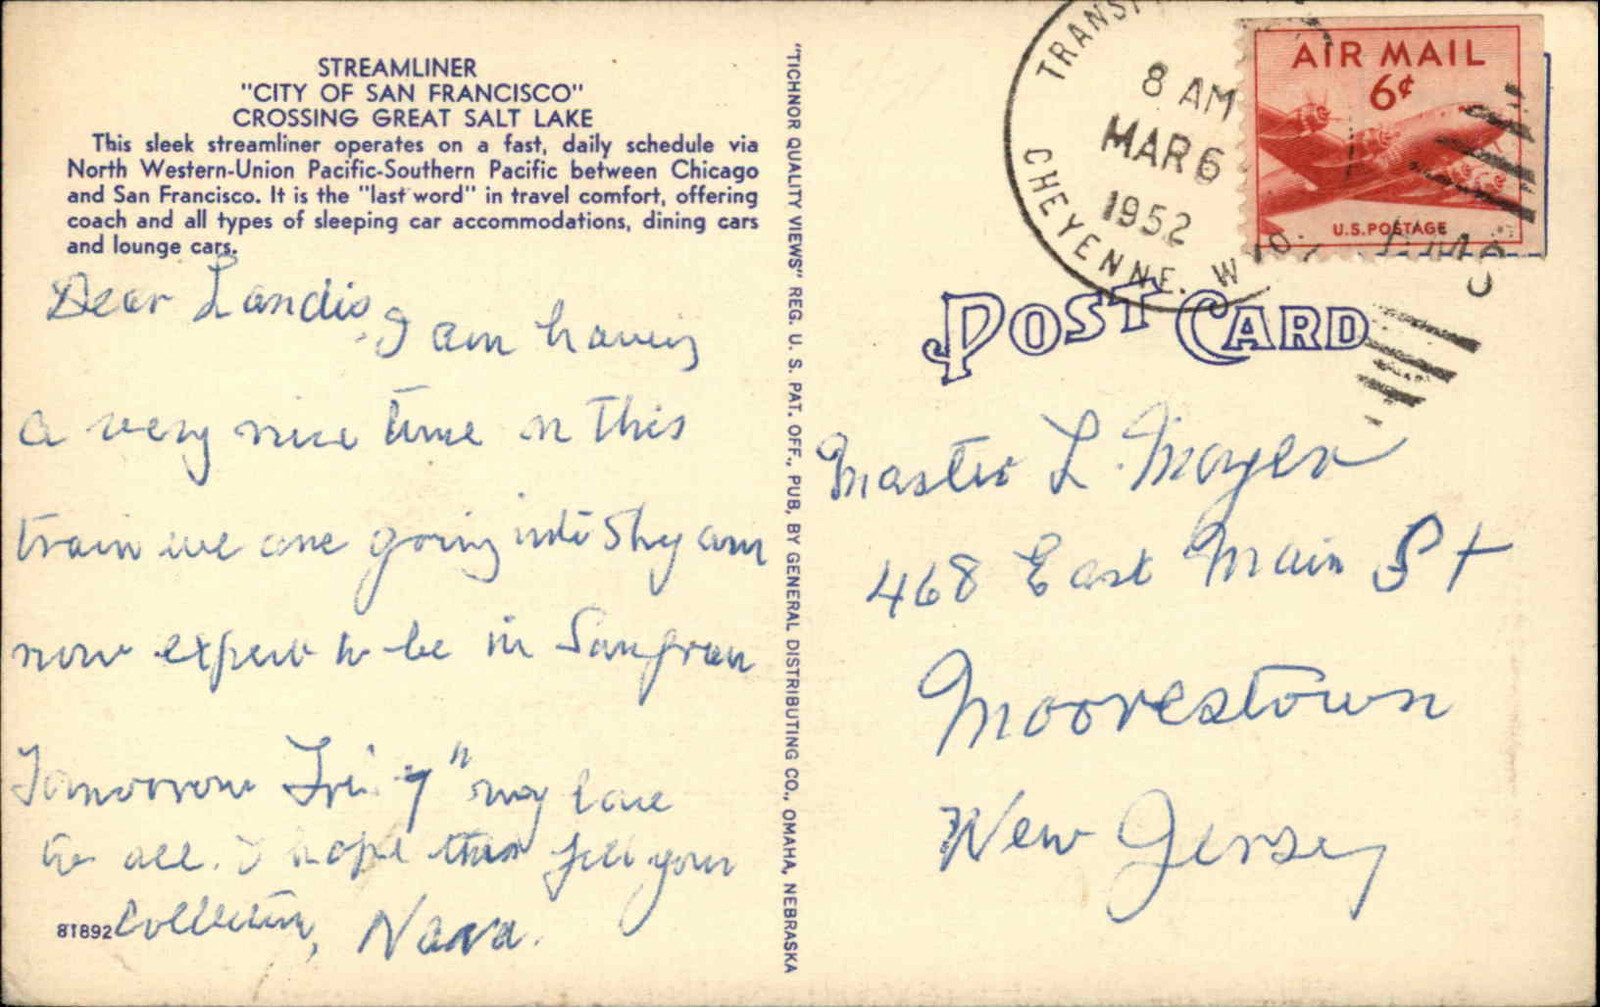 STREAMLINER
"CITY OF SAN FRANCISCO"
CROSSING GREAT SALT LAKE
This sleek streamliner operates on a fast, daily schedule via
North Western-Union Pacific-Southern Pacific between Chicago
and San Francisco. It is the "last word" in travel comfort, offering
coach and all types of sleeping car accommodations, dining cars
and lounge cars.
Dear Landis,
I am having
a very nice time on this
train we are going into
now expect to be in Sanfran
Tomorrow Fri. 7" my love
to all. I hope this your
81892
Collection, Nana.
"TICHNOR QUALITY VIEWS" REG. U. S. PAT. OFF., PUB. BY GENERAL DISTRIBUTING CO., OMAHA, NEBRASKA
8 AM
MAR 6
1952
CHEYENNE. WYO.
AIR MAIL
6¢
U.S. POSTAGE
POST CARD
Master L. Moyer
468 East Main St
Moorestown
New Jersey